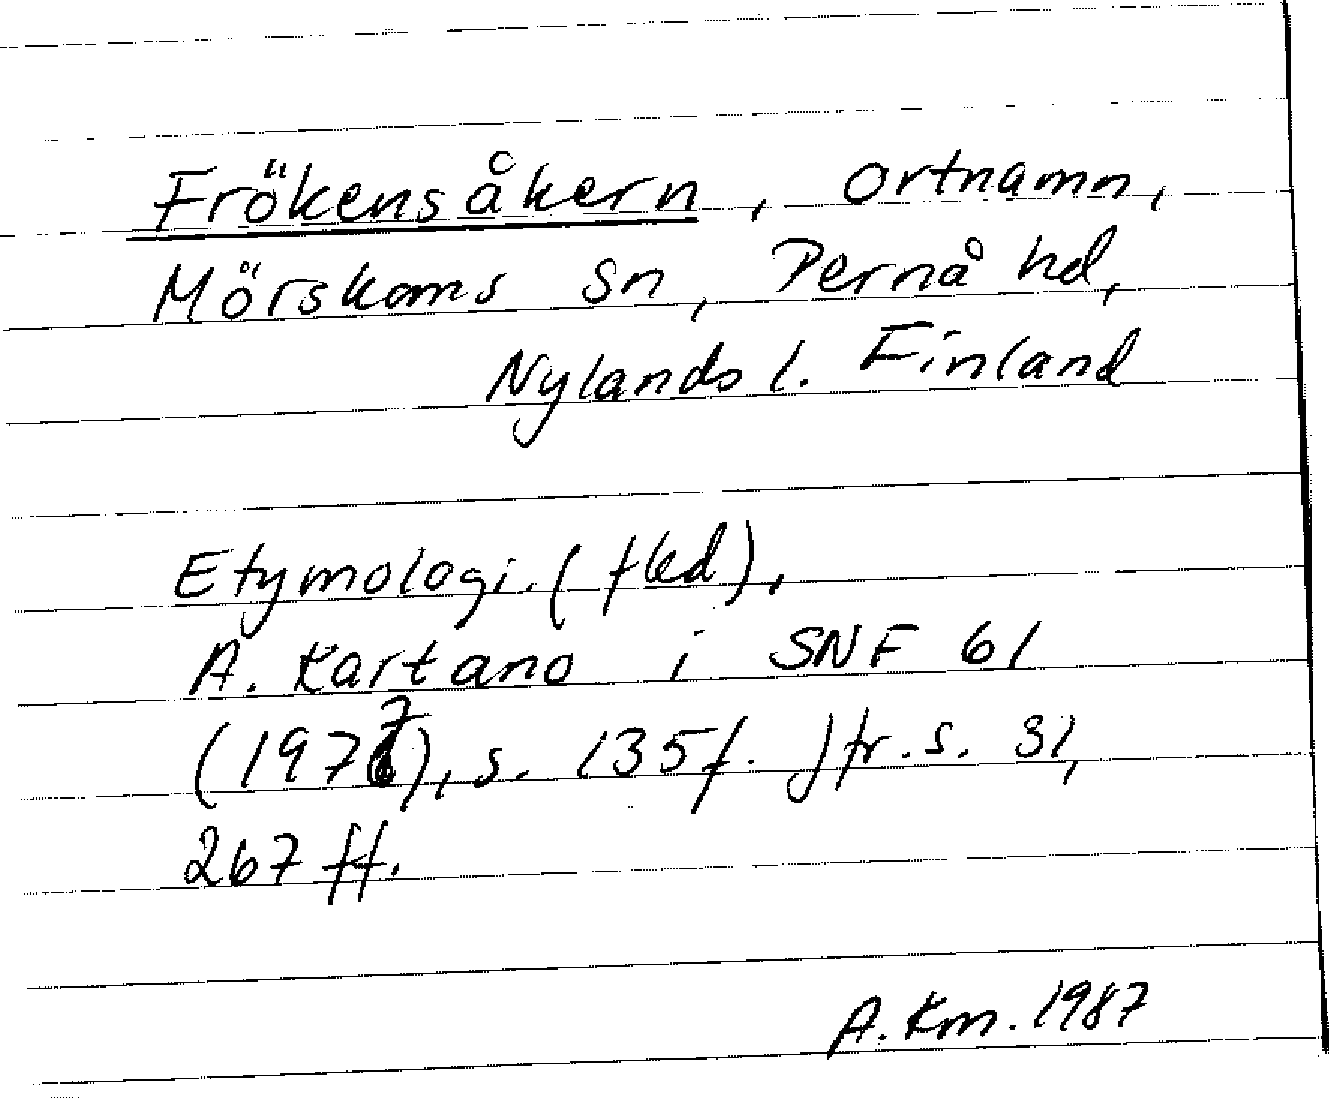 Frökensåkern, ortnamn,
Mörskoms sn, Pernå hd,
Nylands l. Finland
Etymologi. (fled),
A. Kartano i SNF 61
(1977), s. 135f. Jfr. s. 31,
267 ff.
A. Km. 1987